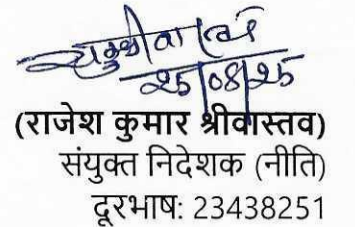 25/08/25
(राजेश कुमार श्रीवास्तव)
संयुक्त निदेशक (नीति)
दूरभाष: 23438251